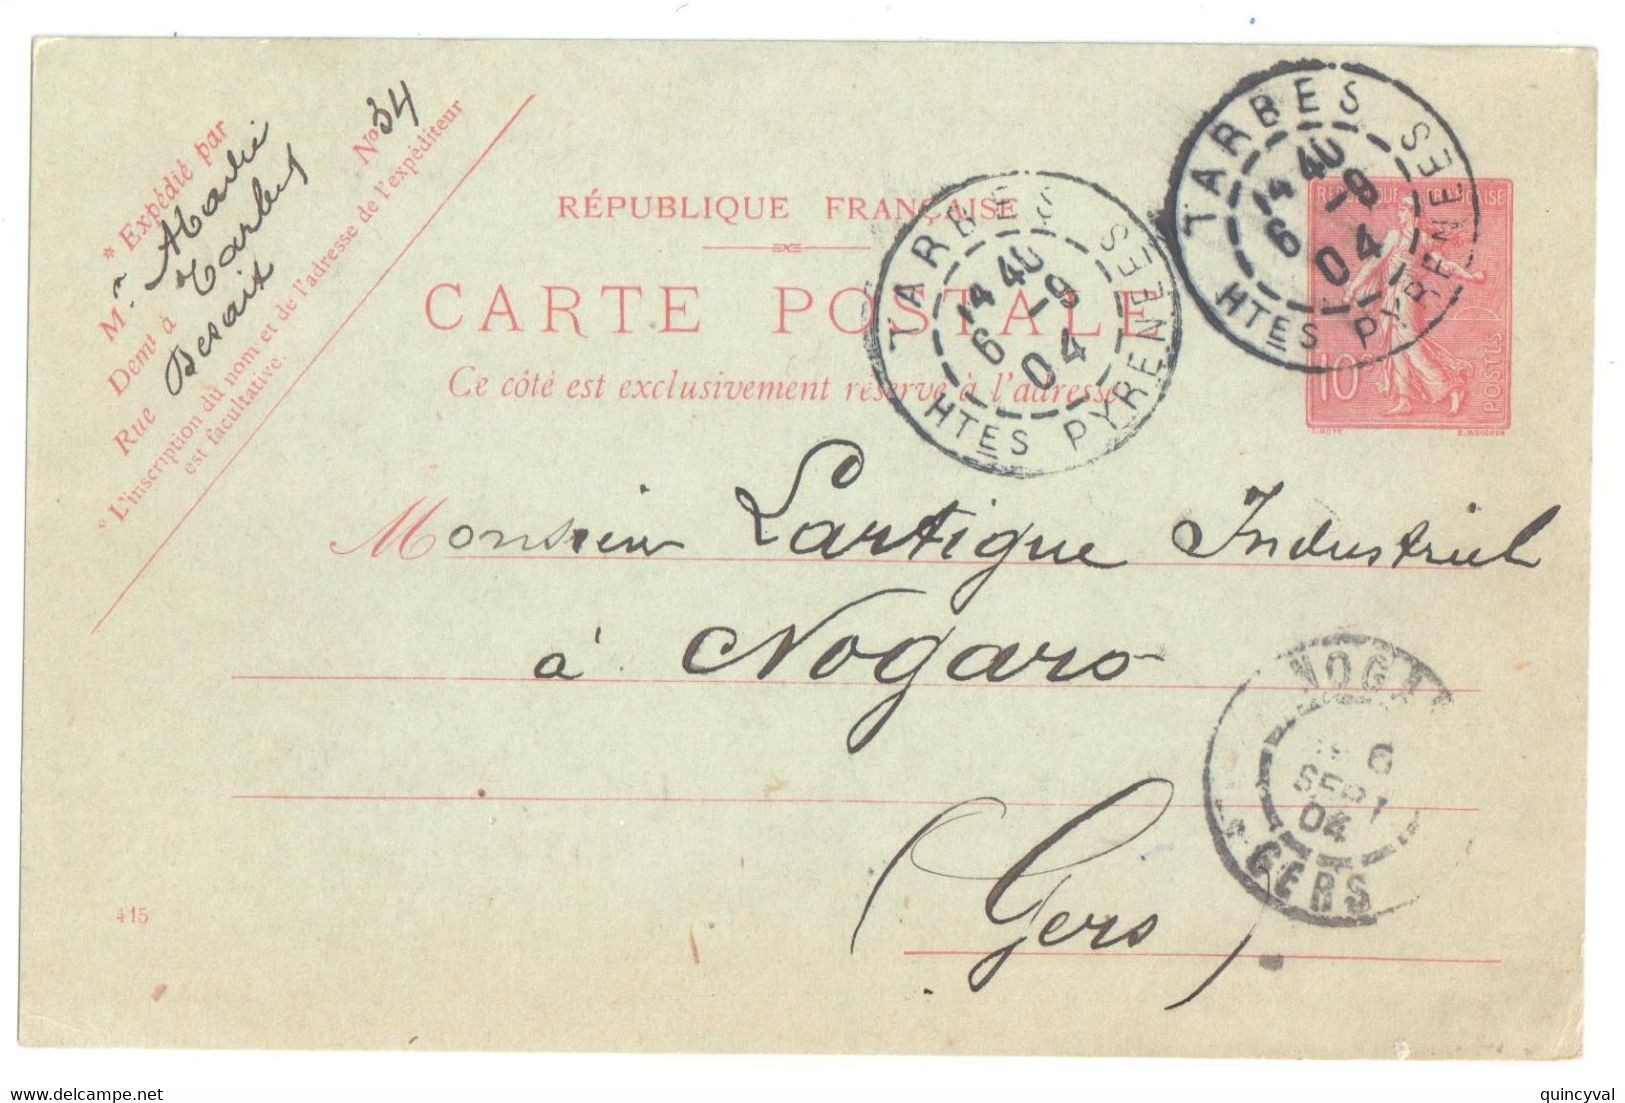 * Expédié par
Mr Abadie
Demt à Tarbes
Rue Besaix No 34
* L'inscription du nom et de l'adresse de l'expéditeur
est facultative.
RÉPUBLIQUE FRANÇAISE
CARTE POSTALE
Ce côté est exclusivement réservé à l'adresse
TARBES
4 40
6 -9
04
HTES PYRENEES
TARBES
4 40
6 -9
04
HTES PYRENEES
REPUBLIQUE FRANÇAISE
10c
POSTES
O. ROTY
E. MOUCHON
Monsieur Lartigue Industriel
à Nogaro
(Gers)
NOGARO
6
SEPT
04
GERS
415
delcampe.net
quincyval